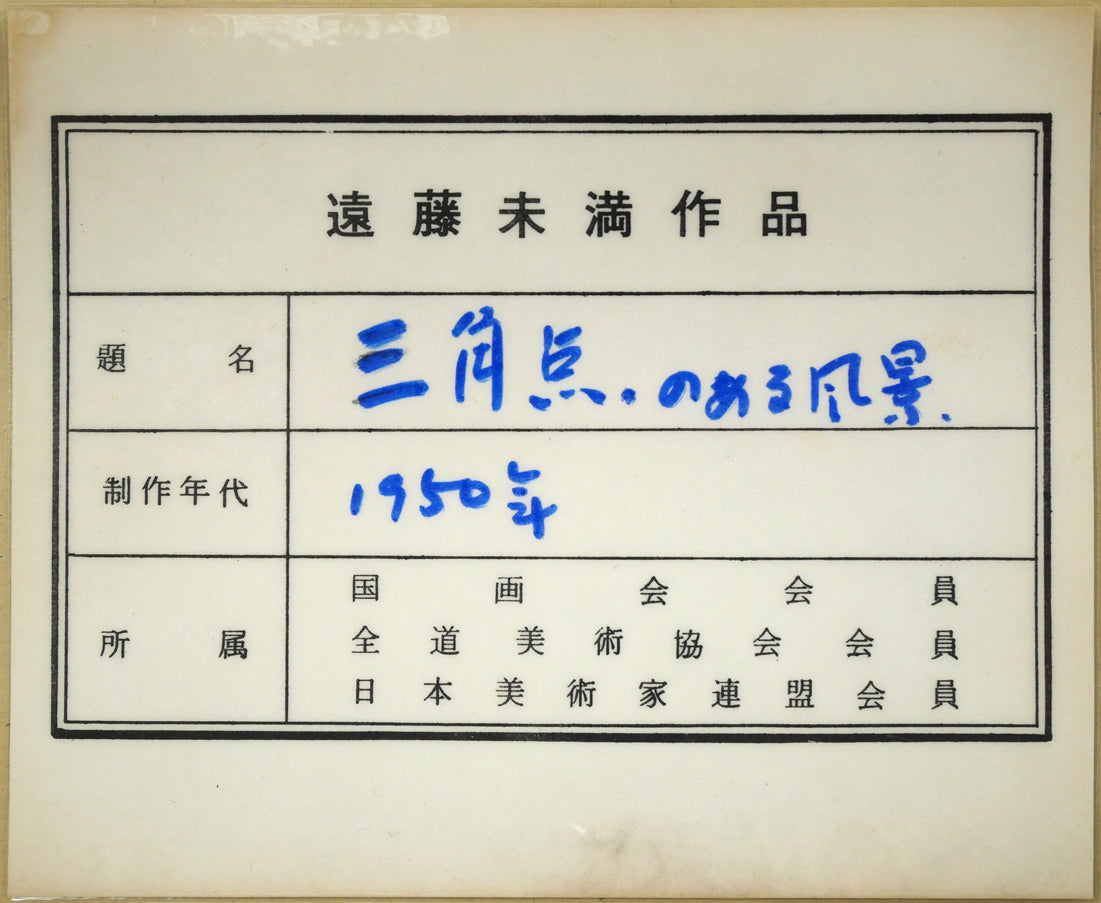 遠藤未満作品
題名 三角点.のある風景.
制作年代 1950年
所属 国画会会員
全道美術協会会員
日本美術家連盟会員